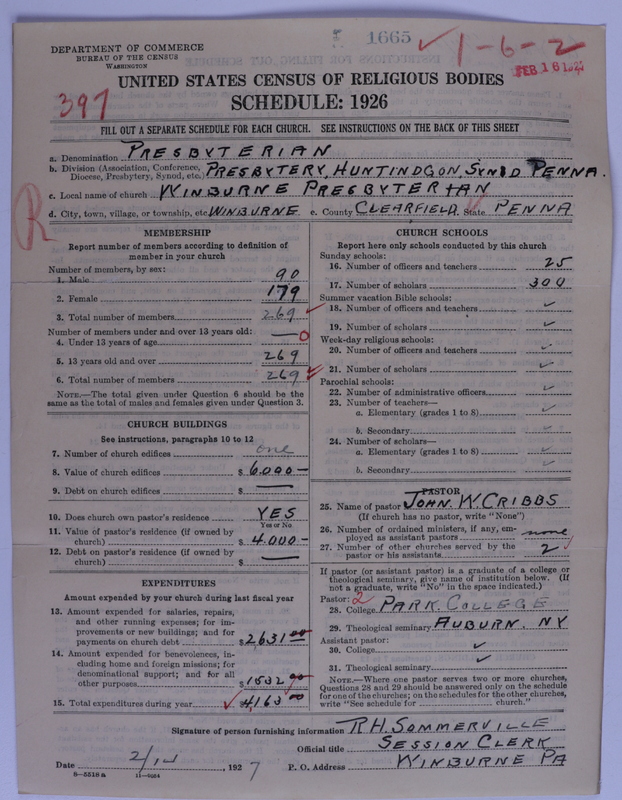 1665
1-6-2
FEB 16 192
DEPARTMENT OF COMMERCE
BUREAU OF THE CENSUS
WASHINGTON
UNITED STATES CENSUS OF RELIGIOUS BODIES
SCHEDULE: 1926
397
FILL OUT A SEPARATE SCHEDULE FOR EACH CHURCH. SEE INSTRUCTIONS ON THE BACK OF THIS SHEET
a. Denomination PRESBYTERIAN
b. Division (Association, Conference, Diocese, Presbytery, Synod, etc.) PRESBYTERY, HUNTINDGON, SYNOD PENNA.
c. Local name of church WINBURNE PRESBYTERIAN
d. City, town, village, or township, etc. WINBURNE e. County CLEARFIELD. State PENNA
R
MEMBERSHIP
Report number of members according to definition of
member in your church
Number of members, by sex:
1. Male 90
2. Female 179
3. Total number of members 269 ✓
Number of members under and over 13 years old:
4. Under 13 years of age — 0
5. 13 years old and over 269
6. Total number of members 269 ✓
NOTE.—The total given under Question 6 should be the
same as the total of males and females given under Question 3.
CHURCH BUILDINGS
See instructions, paragraphs 10 to 12
7. Number of church edifices one
8. Value of church edifices $ 6,000 —
9. Debt on church edifices $ —
10. Does church own pastor's residence YES
Yes or No
11. Value of pastor's residence (if owned by
church) $ 4,000 —
12. Debt on pastor's residence (if owned by
church) $ —
EXPENDITURES
Amount expended by your church during last fiscal year
13. Amount expended for salaries, repairs,
and other running expenses; for im-
provements or new buildings; and for
payments on church debt $ 2631 00
14. Amount expended for benevolences, in-
cluding home and foreign missions; for
denominational support; and for all
other purposes $ 1532 00
15. Total expenditures during year ✓ $ 4163 00
CHURCH SCHOOLS
Report here only schools conducted by this church
Sunday schools:
16. Number of officers and teachers 25
17. Number of scholars 300
Summer vacation Bible schools:
18. Number of officers and teachers ✓
19. Number of scholars ✓
Week-day religious schools:
20. Number of officers and teachers ✓
21. Number of scholars ✓
Parochial schools:
22. Number of administrative officers ✓
23. Number of teachers—
a. Elementary (grades 1 to 8) ✓
b. Secondary ✓
24. Number of scholars—
a. Elementary (grades 1 to 8) ✓
b. Secondary ✓
PASTOR
25. Name of pastor JOHN. W. CRIBBS
(If church has no pastor, write "None")
26. Number of ordained ministers, if any, em-
ployed as assistant pastors none
27. Number of other churches served by the
pastor or his assistants 2 ✓
If pastor (or assistant pastor) is a graduate of a college or
theological seminary, give name of institution below. (If
not a graduate, write "No" in the space indicated.)
Pastor: 2
28. College PARK. COLLEGE
29. Theological seminary AUBURN. NY
Assistant pastor:
30. College ✓
31. Theological seminary ✓
NOTE.—Where one pastor serves two or more churches,
Questions 28 and 29 should be answered only on the schedule
for one of the churches; on the schedules for the other churches,
write "See schedule for church."
Signature of person furnishing information R. H. SOMMERVILLE
Official title SESSION CLERK
Date 192 7 P. O. Address WINBURNE PA
8-5518 a 11-9954